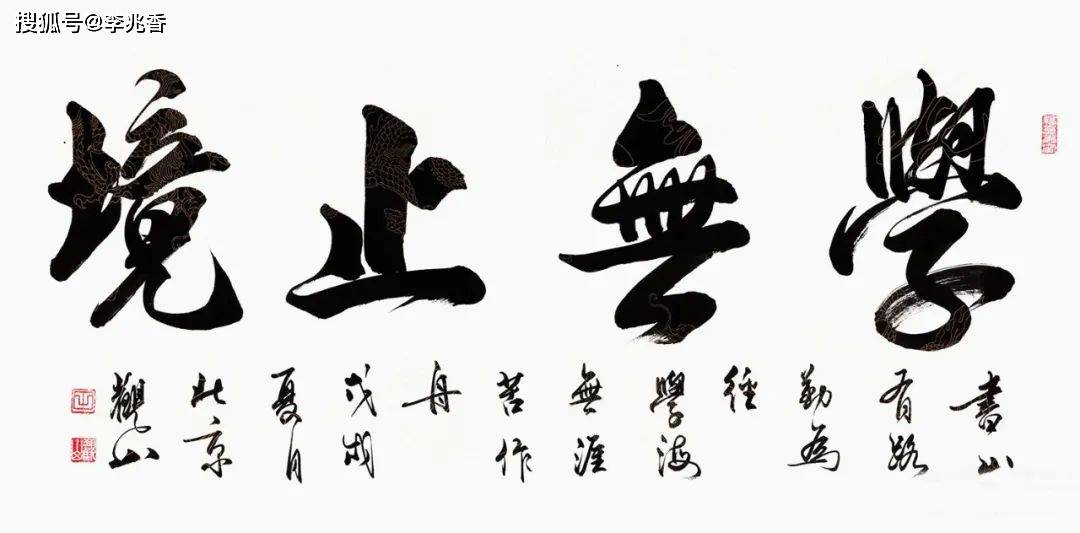 搜狐号@李兆香
學無止境
書山
有路
勤為
徑
學海
無涯
苦作
舟
戊戌
夏月
北京
觀山